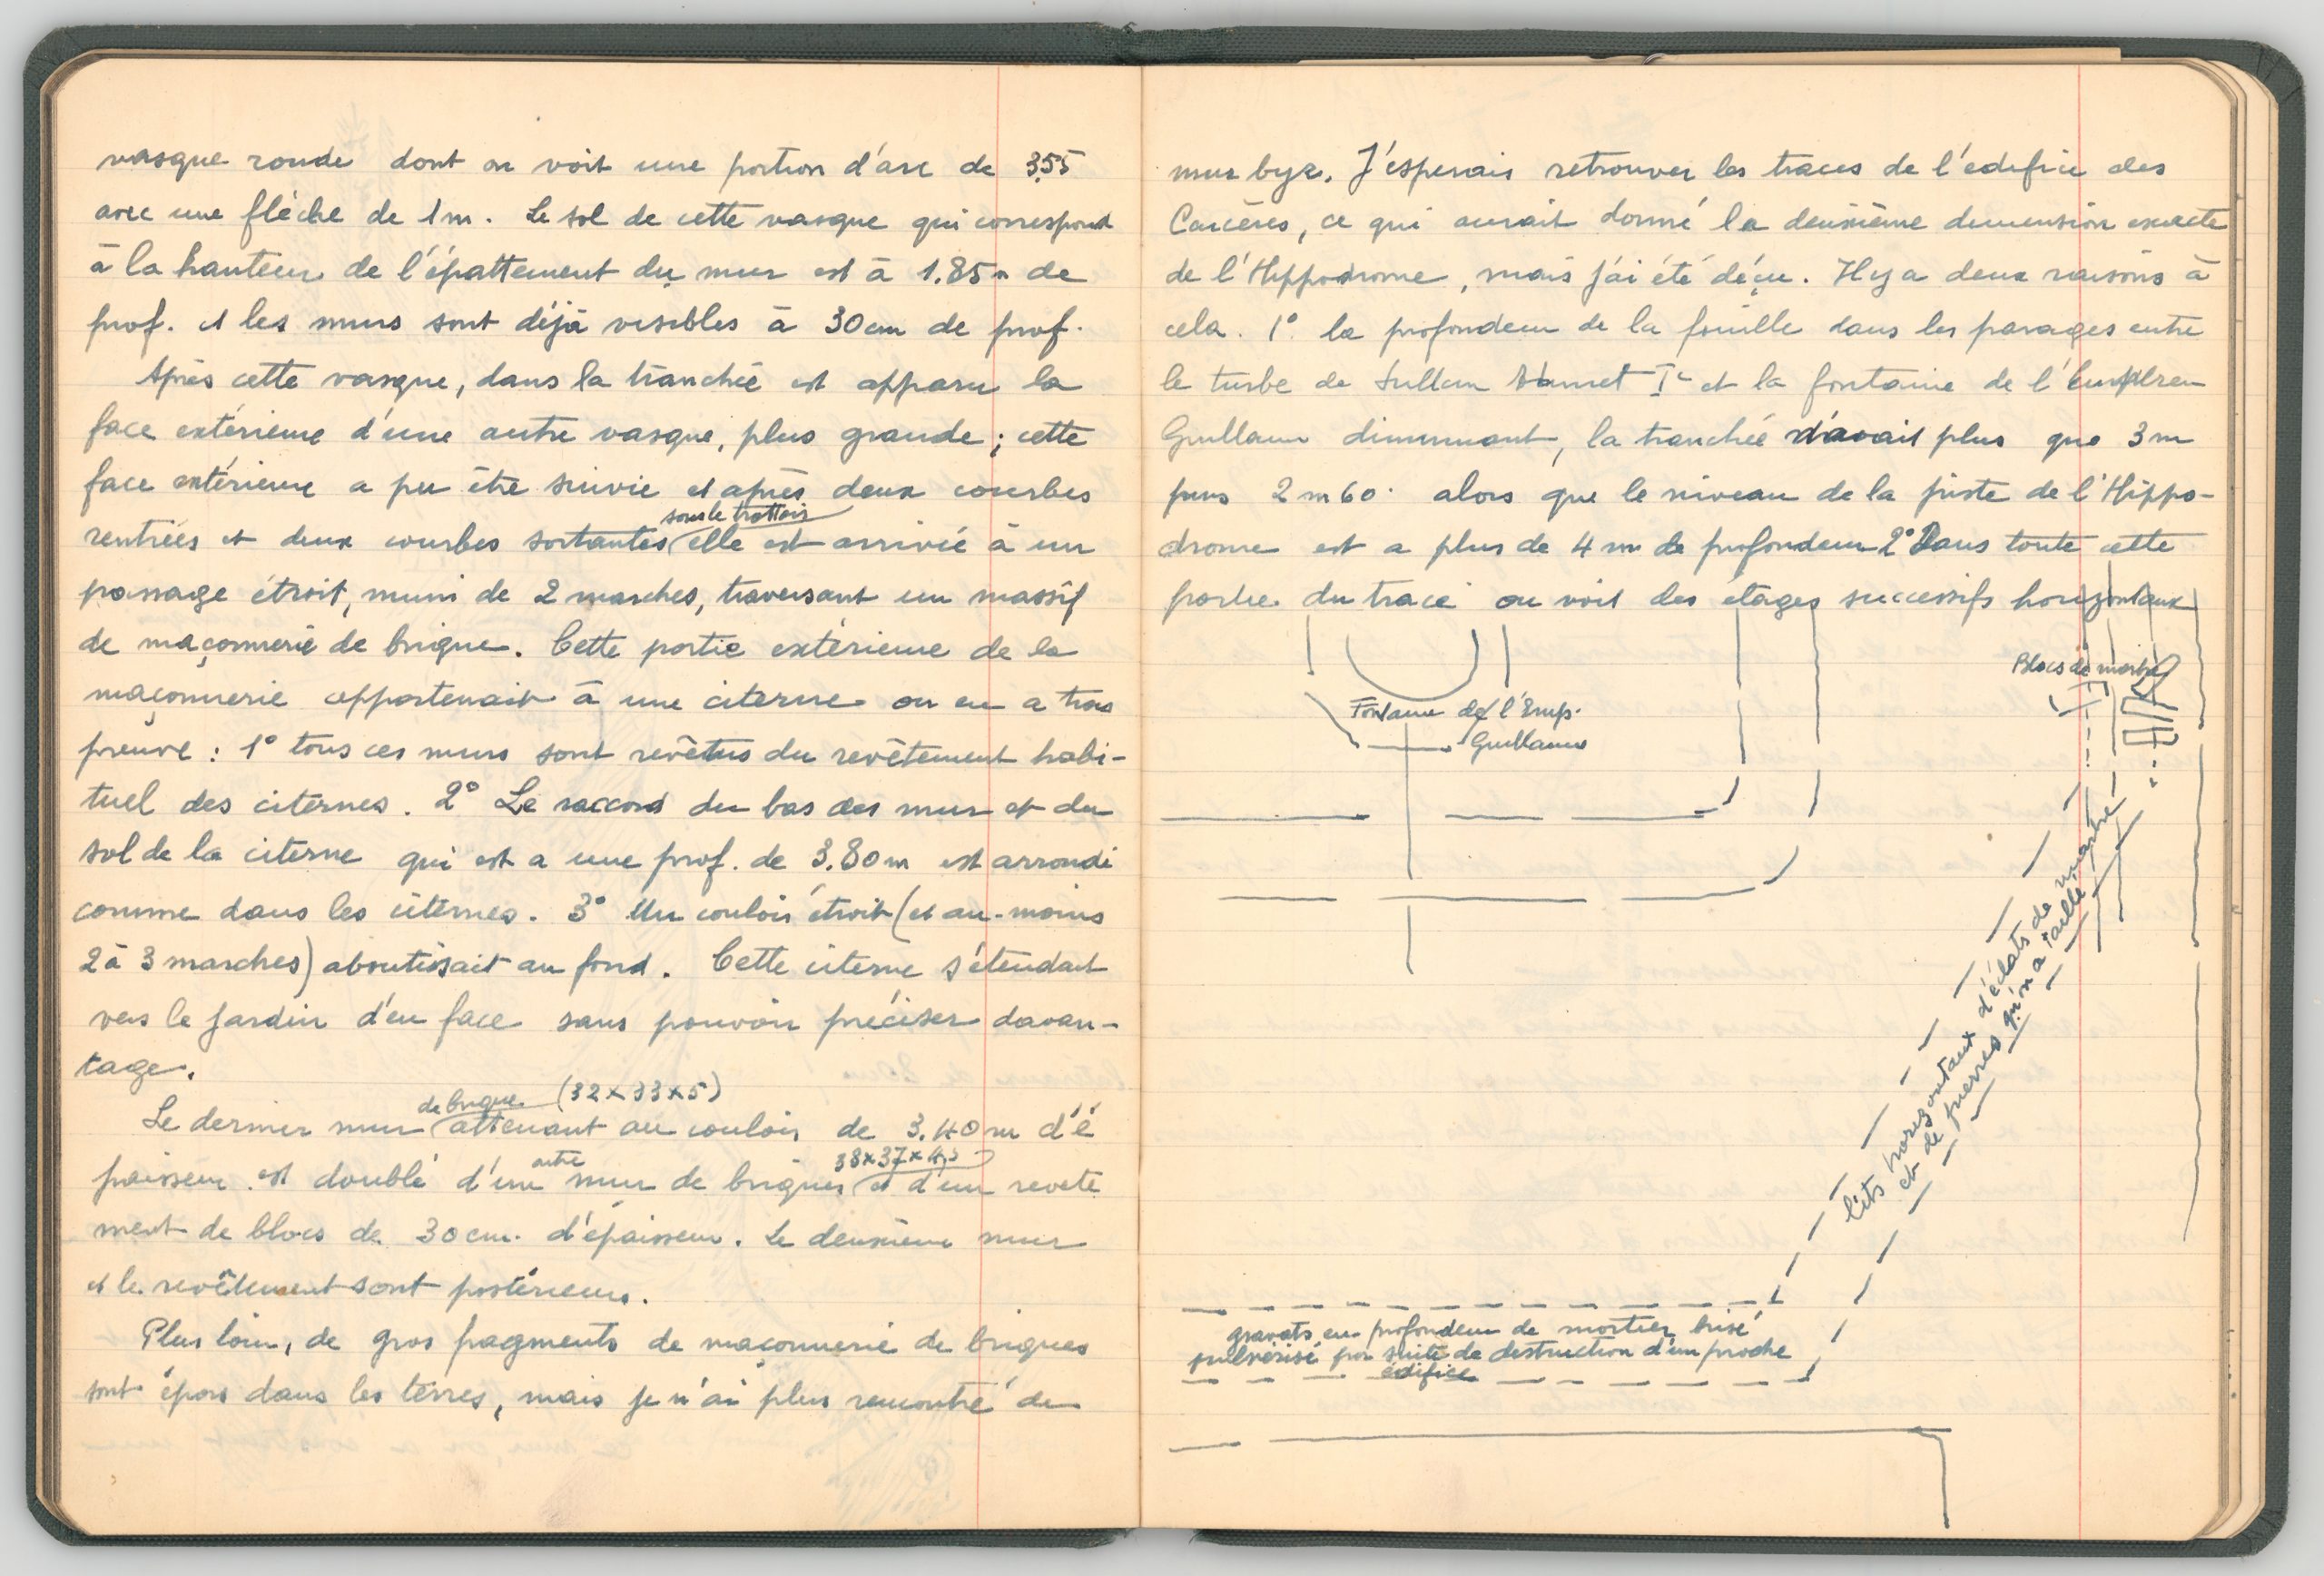 vasque ronde dont on voit une portion d'arc de 3.55
avec une flèche de 1m. Le sol de cette vasque qui correspond
à la hauteur de l'épattement du mur est à 1.85m de
prof. et les murs sont déjà visibles à 30cm de prof.
Après cette vasque, dans la tranchée est apparu la
face extérieure d'une autre vasque, plus grande ; cette
face extérieure a pu être suivie et après deux courbes
sous le trottoir
rentrées et deux courbes sortantes elle est arrivée à un
passage étroit, muni de 2 marches, traversant un massif
de maçonnerie de brique. Cette partie extérieure de la
maçonnerie appartenait à une citerne on en a trois
preuve : 1° tous ces murs sont revêtus du revêtement habi-
tuel des citernes. 2° Le raccord du bas des mur et du
sol de la citerne qui est a une prof. de 3.80m est arrondi
comme dans les citernes. 3° Un couloir étroit (et au-moins
2 à 3 marches) aboutissait au fond. Cette citerne s'étendait
vers le jardin d'en face sans pouvoir préciser davan-
tage.
de brique (32x33x5)
Le dernier mur attenant au couloir de 3.40m d'é
autre 38x37x4,5
paisseur est doublé d'un mur de briques et d'un revete
ment de blocs de 30cm. d'épaisseur. Le deuxième mur
et le revêtement sont postérieurs.
Plus loin, de gros fragments de maçonnerie de briques
sont épars dans les terres, mais je n'ai plus rencontré de
mur byz. J'esperais retrouver les traces de l'édifice des
Carcères, ce qui aurait donné la deuxième dimension exacte
de l'Hippodrome, mais j'ai été déçu. Il y a deux raisons à
cela. 1° la profondeur de la fouille dans les parages entre
le turbe de Sultan Ahmet Ier et la fontaine de l'Empereur
Guillaume diminuant, la tranchée n'avait plus que 3m
puis 2m60. alors que le niveau de la piste de l'Hippo-
drome est a plus de 4m de profondeur 2° Dans toute cette
partie du tracé on voit des étages successifs horizontaux
Blocs de marbre
Fontaine de l'Emp.
Guillaume
lits horizontaux d'éclats de marbre
et de pierres qu'on a taillé
gravats en profondeur de mortier brisé
pulvérisé par suite de destruction d'un proche
édifice